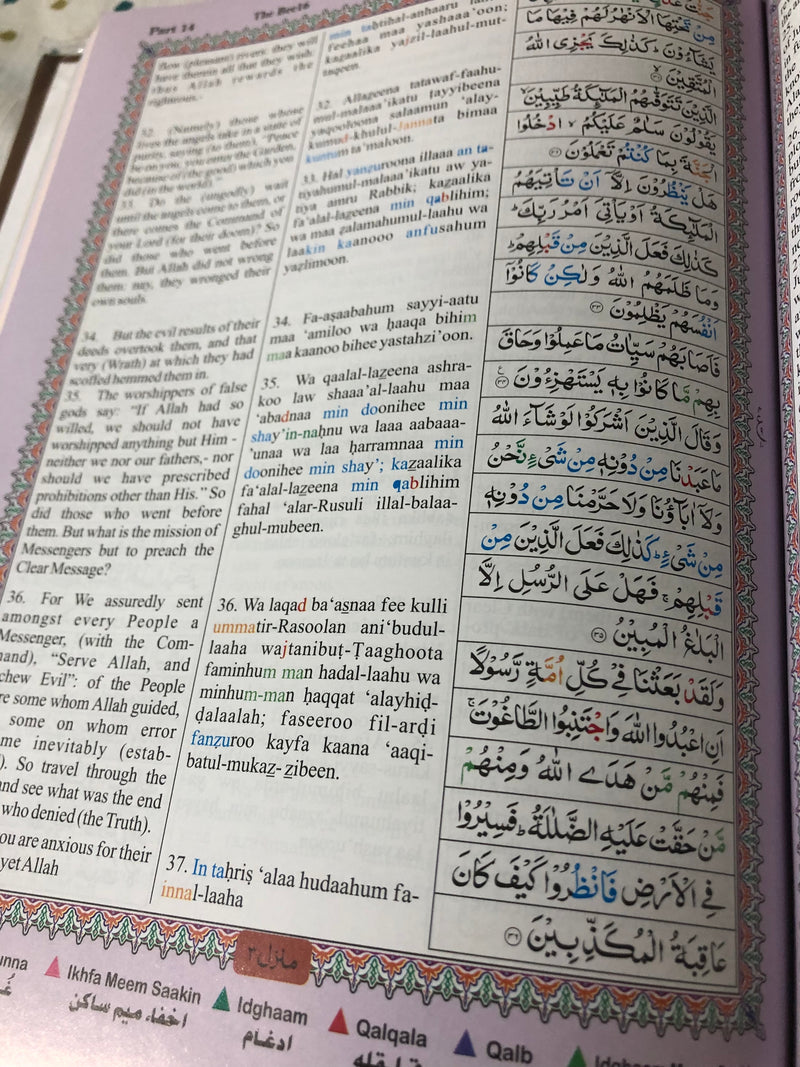 Part 14
The Bee16
flow (pleasant) rivers: they will
have therein all that they wish:
thus Allah rewards the
righteous,-
32. (Namely) those whose
lives the angels take in a state of
purity, saying (to them), "Peace
be on you; you enter the Garden,
because of (the good) which you
did (in the world)."
33. Do the (ungodly) wait
until the angels come to them, or
there comes the Command of
your Lord (for their doom)? So
did those who went before
them. But Allah did not wrong
them: nay, they wronged their
own souls.
34. But the evil results of their
deeds overtook them, and that
very (Wrath) at which they had
scoffed hemmed them in.
35. The worshippers of false
gods say: "If Allah had so
willed, we should not have
worshipped anything but Him -
neither we nor our fathers,- nor
should we have prescribed
prohibitions other than His." So
did those who went before
them. But what is the mission of
Messengers but to preach the
Clear Message?
36. For We assuredly sent
amongst every People a
Messenger, (with the Com-
and), "Serve Allah, and
chew Evil": of the People
re some whom Allah guided,
some on whom error
me inevitably (estab-
). So travel through the
nd see what was the end
who denied (the Truth).
ou are anxious for their
yet Allah
min taḥtihal-anhaaru
feehaa maa yashaaa'oon;
kaẕaalika yajzil-laahul-mut-
taqeen.
32. Allaẕeena tatawaf-faahu-
mul-malaaa'ikatu ṭayyibeena
yaqooloona salaamun 'alay-
kumud-khulul-Jannata bimaa
kuntum ta'maloon.
33. Hal yanẓuroona illaaa an ta-
tiyahumul-malaaa'ikatu aw ya-
tiya amru Rabbik; kaẕaalika
fa'alal-laẕeena min qablihim;
wa maa ẓalamahumul-laahu wa
laakin kaanooo anfusahum
yaẓlimoon.
34. Fa-aṣaabahum sayyi-aatu
maa 'amiloo wa ḥaaqa bihim
maa kaanoo bihee yastahzi'oon.
35. Wa qaalal-laẕeena ashra-
koo law shaaa'al-laahu maa
'abadnaa min doonihee min
shay'in-naḥnu wa laaa aabaaa-
'unaa wa laa ḥarramnaa min
doonihee min shay'; kaẕaalika
fa'alal-laẕeena min qablihim
fahal 'alar-Rusuli illal-balaa-
ghul-mubeen.
36. Wa laqad ba'as̱naa fee kulli
ummatir-Rasoolan ani'budul-
laaha wajtanibuṭ-Ṭaaghoota
faminhum man hadal-laahu wa
minhum-man ḥaqqat 'alayhiḍ-
ḍalaalah; faseeroo fil-arḍi
fanẓuroo kayfa kaana 'aaqi-
batul-mukaẕ- ẕibeen.
37. In taḥriṣ 'alaa hudaahum fa-
innal-laaha
مِنْ تَحْتِهَا الْاَنْهٰرُ لَهُمْ فِيْهَا مَا
يَشَآءُوْنَ ؕ كَذٰلِكَ يَجْزِى اللّٰهُ
الْمُتَّقِيْنَ ۙ﴿۳۱﴾
الَّذِيْنَ تَتَوَفّٰٮهُمُ الْمَلٰٓٮِٕكَةُ طَيِّبِيْنَ ۙ
يَقُوْلُوْنَ سَلٰمٌ عَلَيْكُمُ ۙ ادْخُلُوا
الْجَنَّةَ بِمَا كُنْتُمْ تَعْمَلُوْنَ ﴿۳۲﴾
هَلْ يَنْظُرُوْنَ اِلَّاۤ اَنْ تَاْتِيَهُمُ
الْمَلٰٓٮِٕكَةُ اَوْ يَاْتِىَ اَمْرُ رَبِّكَ ؕ
كَذٰلِكَ فَعَلَ الَّذِيْنَ مِنْ قَبْلِهِمْ ؕ
وَمَا ظَلَمَهُمُ اللّٰهُ وَلٰكِنْ كَانُوْۤا
اَنْفُسَهُمْ يَظْلِمُوْنَ ﴿۳۳﴾
فَاَصَابَهُمْ سَيِّاٰتُ مَا عَمِلُوْا وَحَاقَ
بِهِمْ مَّا كَانُوْا بِهٖ يَسْتَهْزِءُوْنَ ﴿۳۴﴾
وَقَالَ الَّذِيْنَ اَشْرَكُوْا لَوْ شَآءَ اللّٰهُ
مَا عَبَدْنَا مِنْ دُوْنِهٖ مِنْ شَىْءٍ نَّحْنُ
وَلَاۤ اٰبَآؤُنَا وَلَا حَرَّمْنَا مِنْ دُوْنِهٖ
مِنْ شَىْءٍ ؕ كَذٰلِكَ فَعَلَ الَّذِيْنَ مِنْ
قَبْلِهِمْ ۚ فَهَلْ عَلَى الرُّسُلِ اِلَّا
الْبَلٰغُ الْمُبِيْنُ ﴿۳۵﴾
وَلَقَدْ بَعَثْنَا فِىْ كُلِّ اُمَّةٍ رَّسُوْلًا
اَنِ اعْبُدُوا اللّٰهَ وَاجْتَنِبُوا الطَّاغُوْتَ ۚ
فَمِنْهُمْ مَّنْ هَدَى اللّٰهُ وَمِنْهُمْ
مَّنْ حَقَّتْ عَلَيْهِ الضَّلٰلَةُ ؕ فَسِيْرُوْا
فِى الْاَرْضِ فَانْظُرُوْا كَيْفَ كَانَ
عَاقِبَةُ الْمُكَذِّبِيْنَ ﴿۳۶﴾
منزل ۳
unna
Ikhfa Meem Saakin
اخفاء ميم ساكن
Idghaam
ادغام
Qalqala
قلقله
Qalb